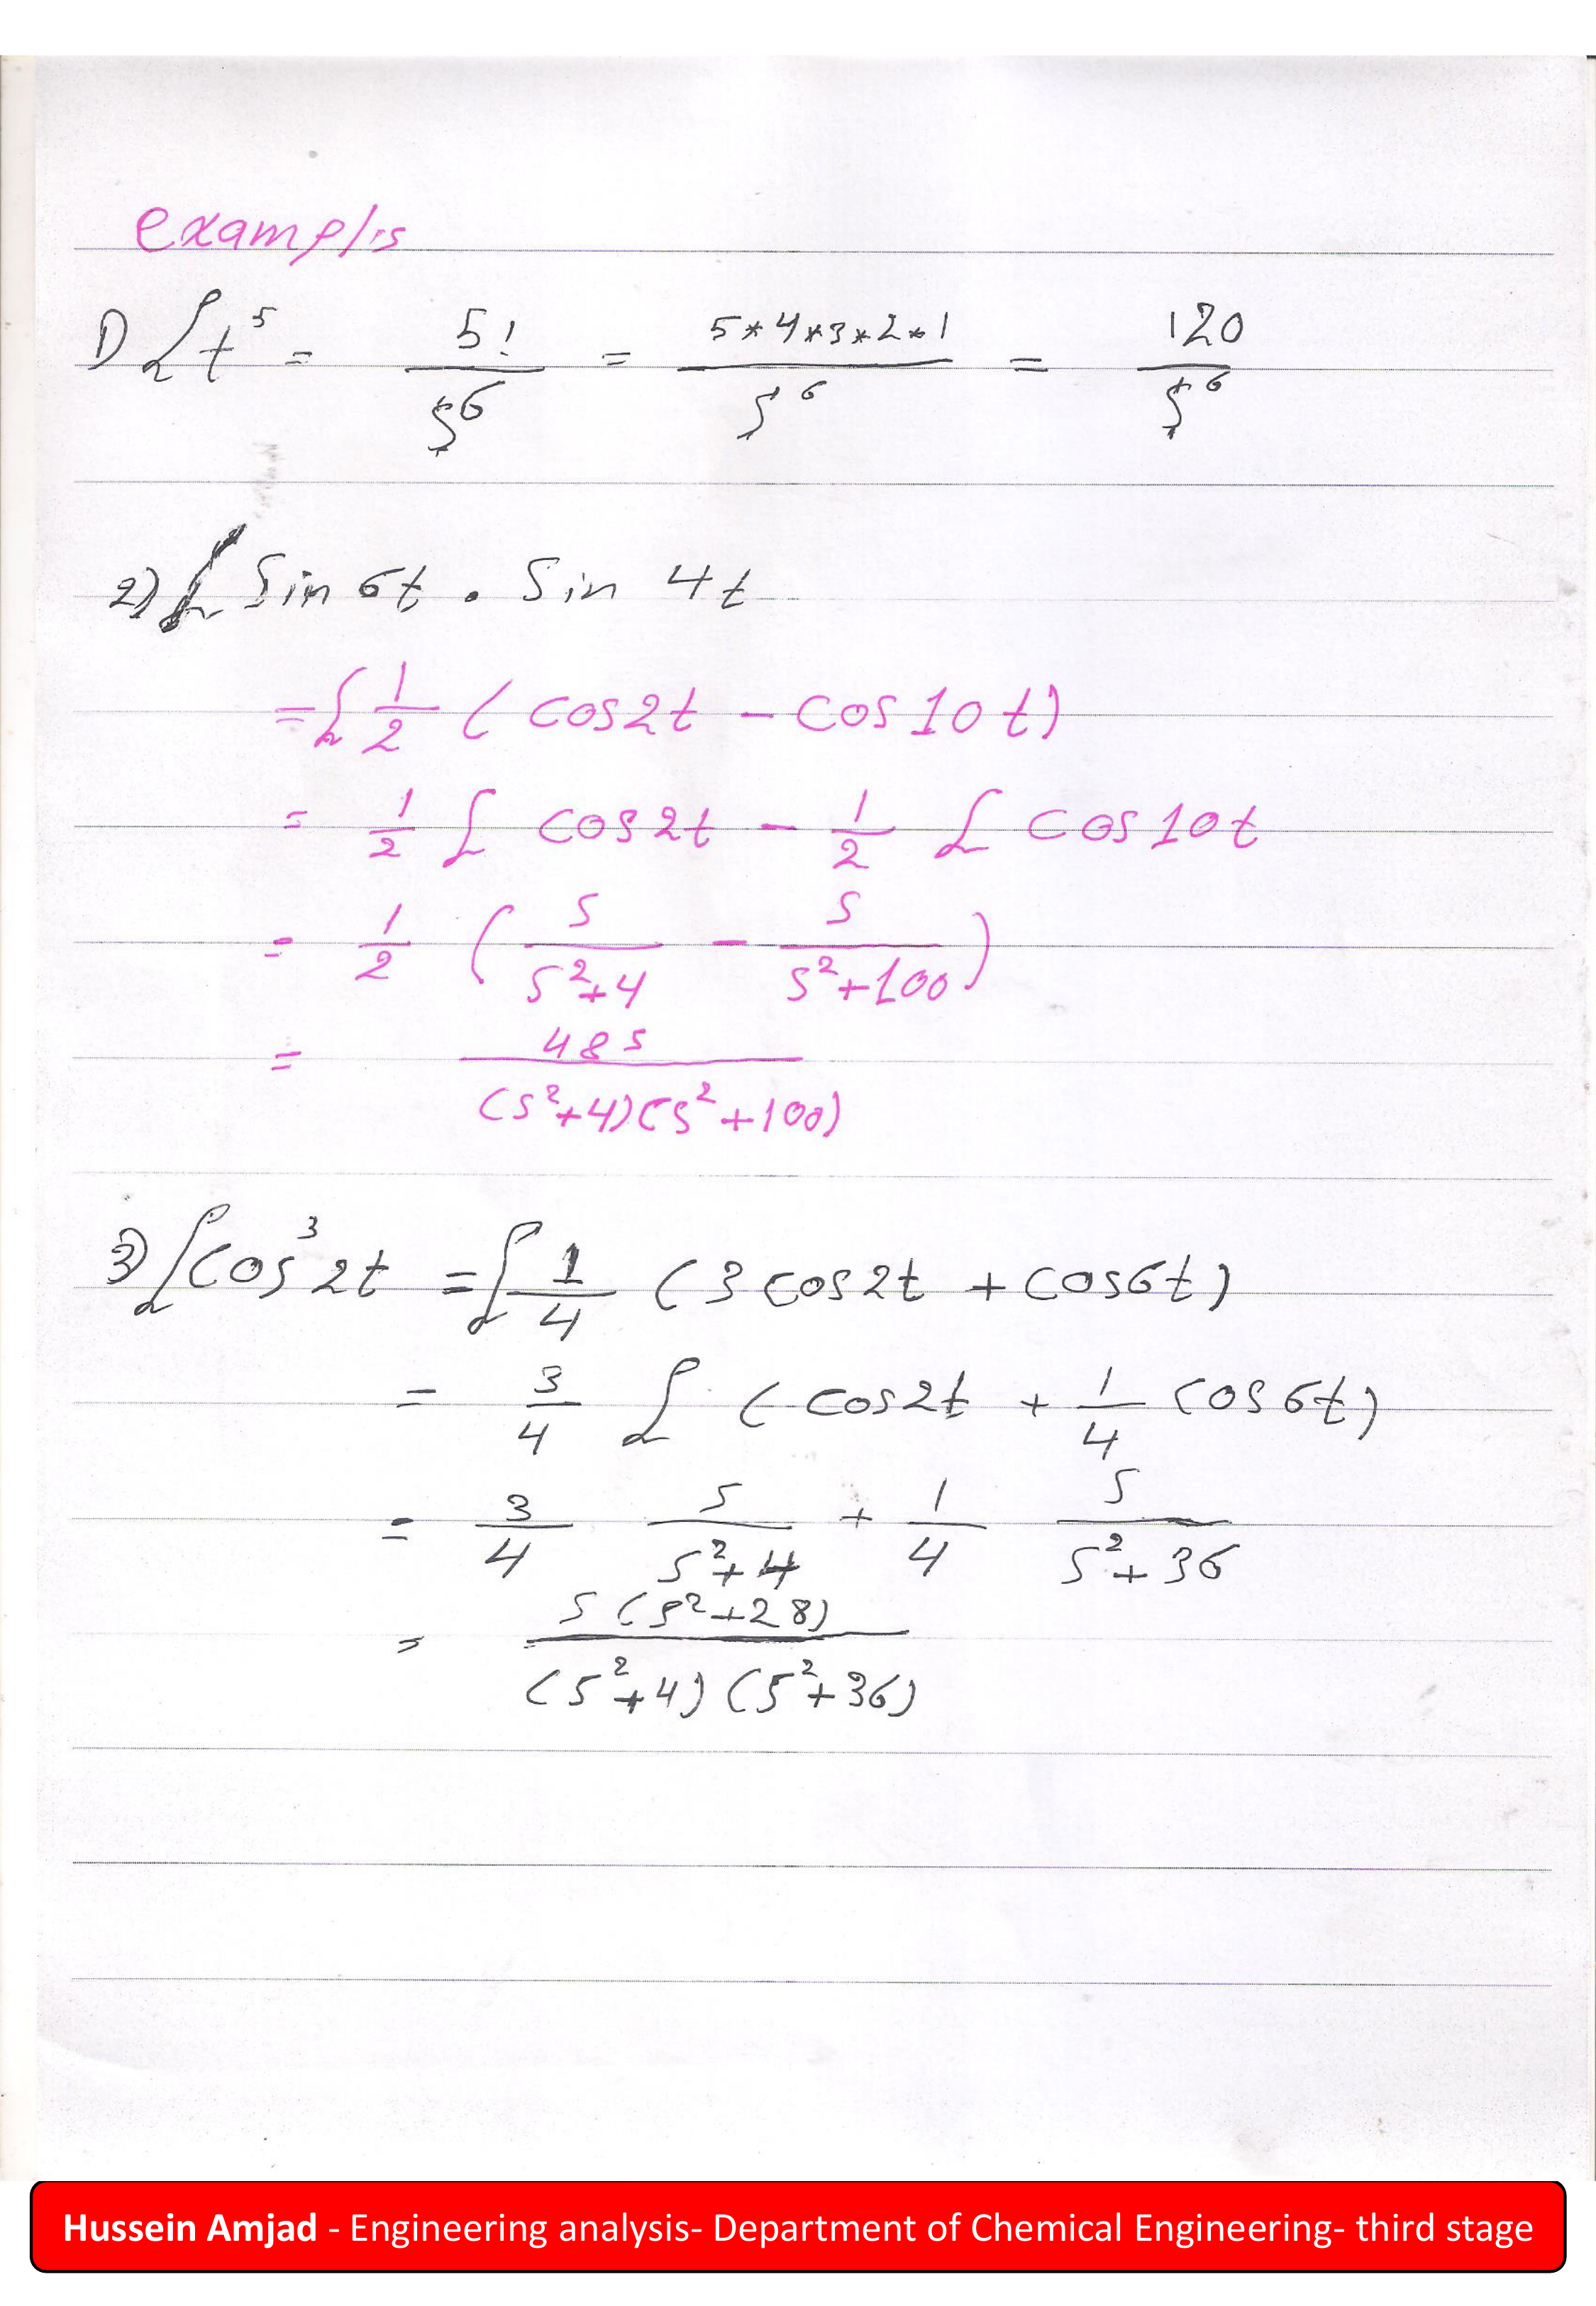 examples
1) ℒ t⁵ = 5!/s⁶ = 5*4*3*2*1/s⁶ = 120/s⁶
2) ℒ sin 6t . sin 4t
= ℒ 1/2 (cos2t - cos10t)
= 1/2 ℒ cos2t - 1/2 ℒ cos10t
= 1/2 (s/(s²+4) - s/(s²+100))
= 48s/((s²+4)(s²+100))
3) ℒ cos³2t = ℒ 1/4 (3cos2t + cos6t)
= 3/4 ℒ (cos2t + 1/4 cos6t)
= 3/4 s/(s²+4) + 1/4 s/(s²+36)
= s(s²+28)/((s²+4)(s²+36))
Hussein Amjad - Engineering analysis- Department of Chemical Engineering- third stage